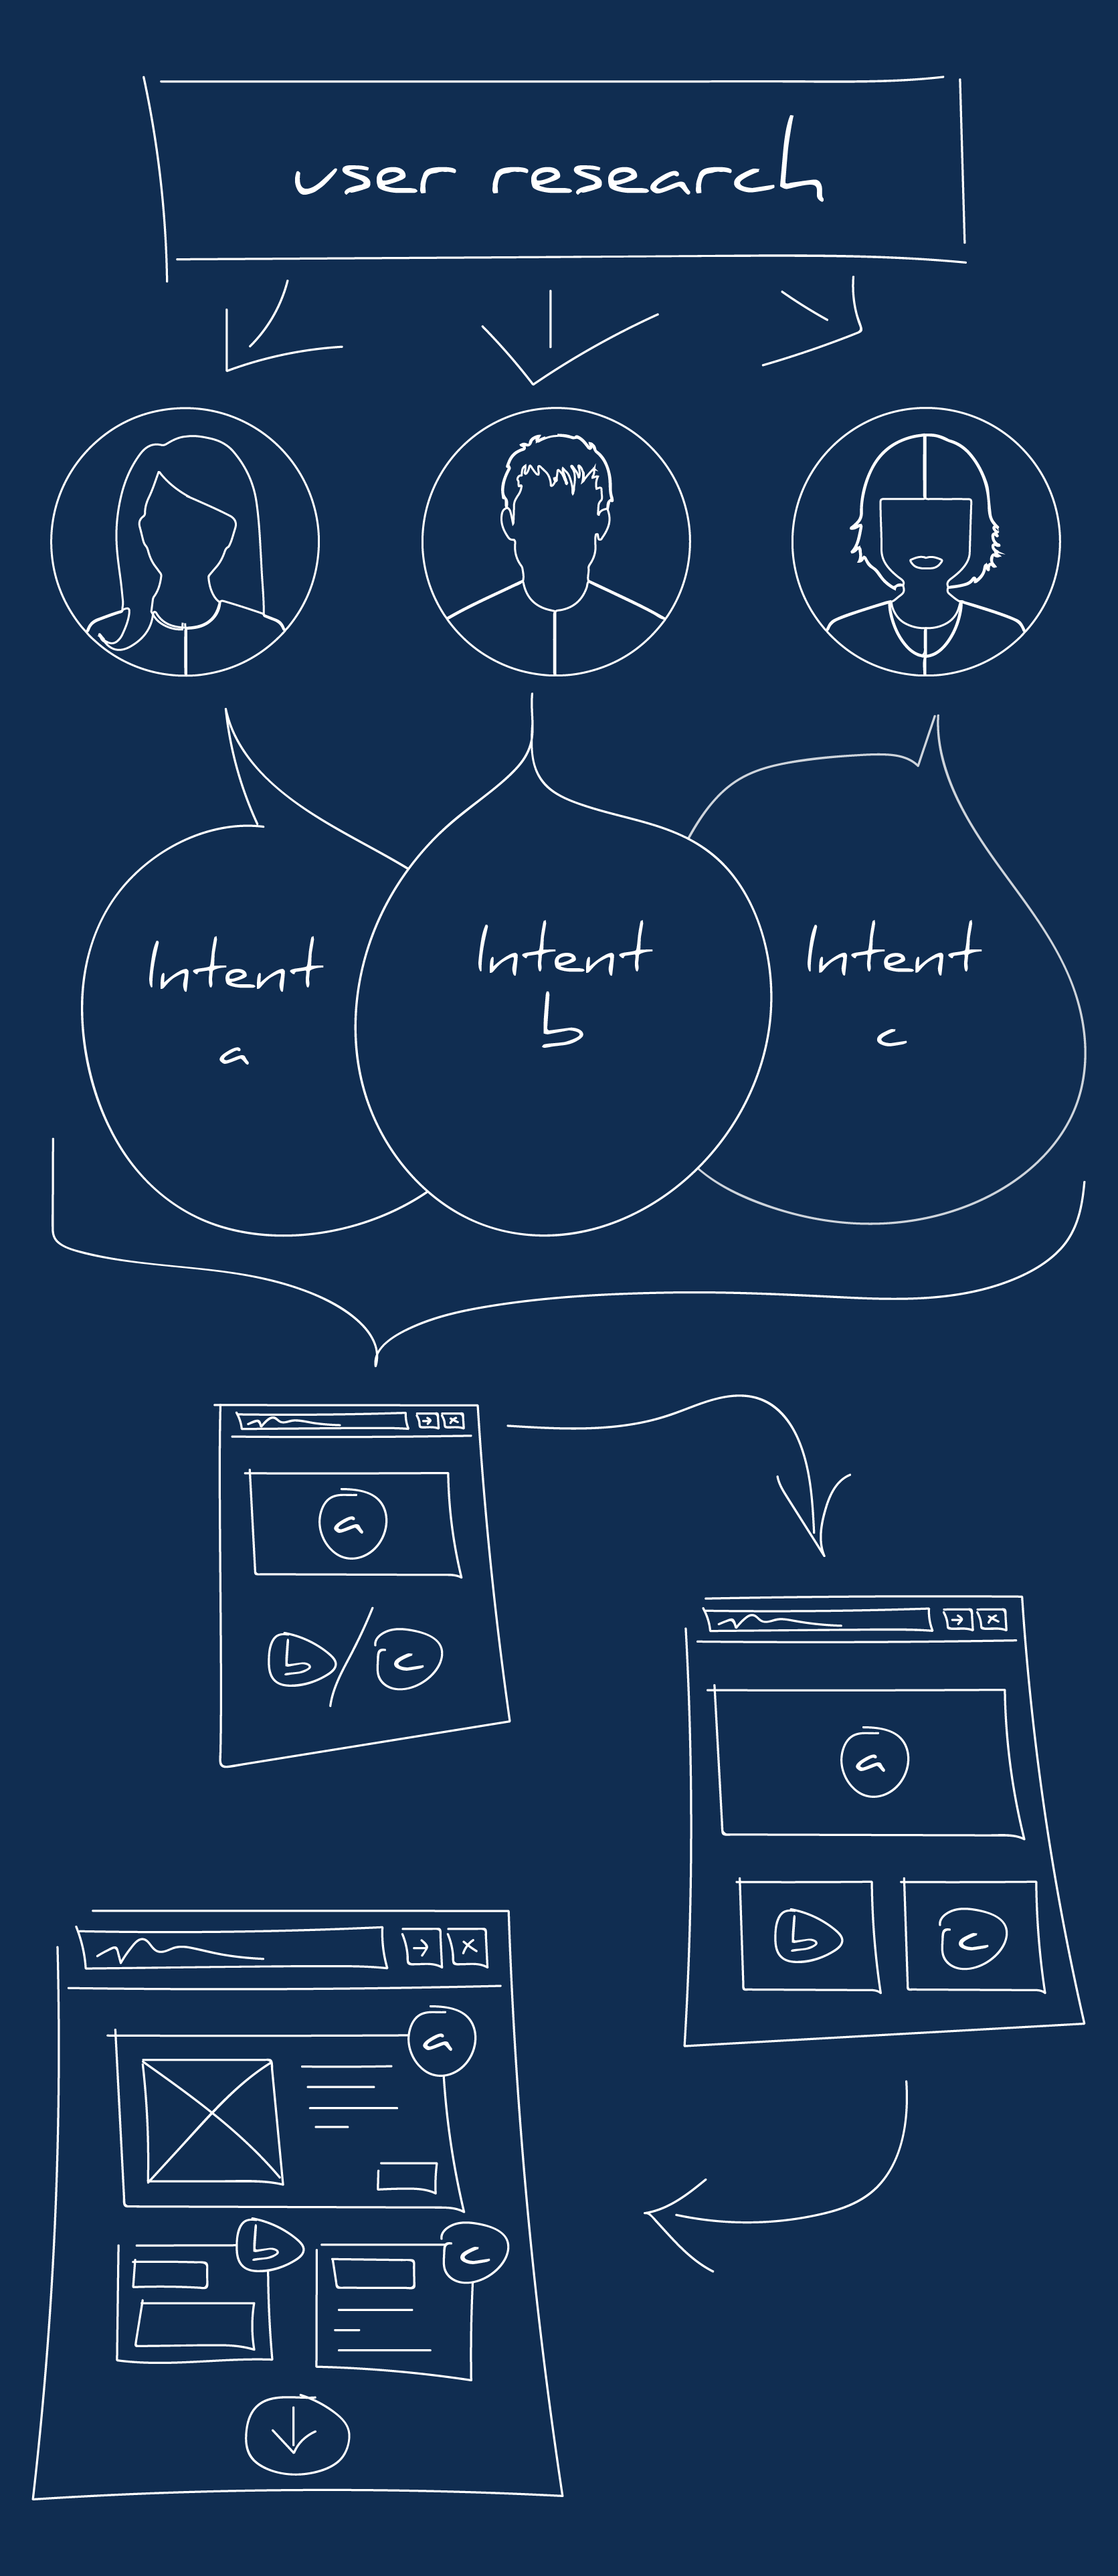 user research
Intent
a
Intent
b
Intent
c
a
b
c
a
b
c
a
b
c